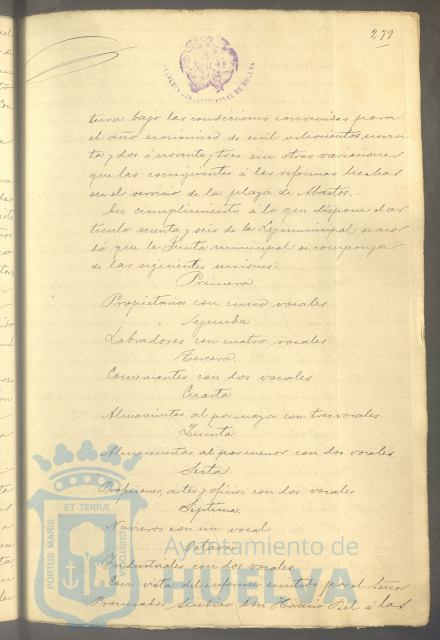 279
tura bajo las condiciones convenidas para
el año económico de mil ochocientos noven
ta y dos á noventa y tres sin otras variaciones
que las consiguientes á las reformas hechas
en el servicio de la plaza de Abastos.
En cumplimiento á lo que dispone el ar
tículo sesenta y seis de la Ley municipal se acor
dó que la Junta municipal se componga
de las siguientes secciones:
Primera
Propietarios con cinco vocales
Segunda
Labradores con cuatro vocales
Tercera
Comerciantes con dos vocales
Cuarta
Almacenistas al por mayor con tres vocales
Quinta
Almacenistas al por menor con dos vocales
Sesta
Profesiones, artes y oficios con dos vocales
Septima
Navieros con un vocal
Octava
Industriales con dos vocales
Con vista del informe emitido por el Señor
Procurador Síndico Don Horacio Bel á las
PORTUS MARIS ET TERRÆ CUSTODIA
Ayuntamiento de
HUELVA